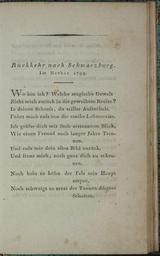 Rückkehr nach Schwarzburg.
Im Herbst 1799.
Wo bin ich? Welche magische Gewalt
Zieht mich zurück in die geweihten Kreise?
In deinen Schoos, du stiller Aufenthalt,
Führt mich aufs neu die rasche Lebensreise.
Ich grüße dich mit
Wie einen Freund nach langer Jahre Trennen,
Und rufe mir dein altes Bild zurück,
Und freue mich, noch ganz dich zu erkennen.
Noch hebt es kühn der Fels sein Haupt empor,
Noch schweigt so ernst der Tannen
Schatten,